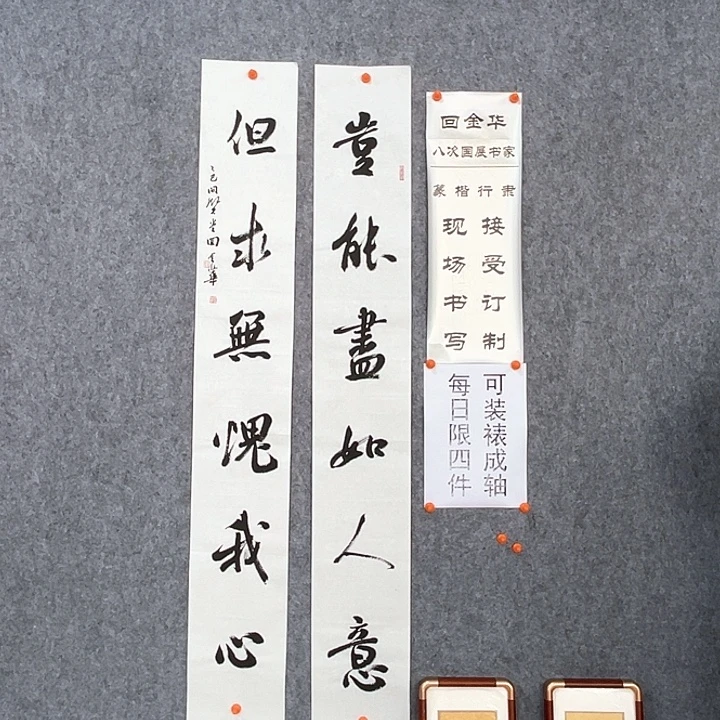 豈能盡如人意
但求無愧我心
乙巳 堂回金華
回金华
八次国展书家
篆楷行隶
接受订制
现场书写
可装裱成轴
每日限四件